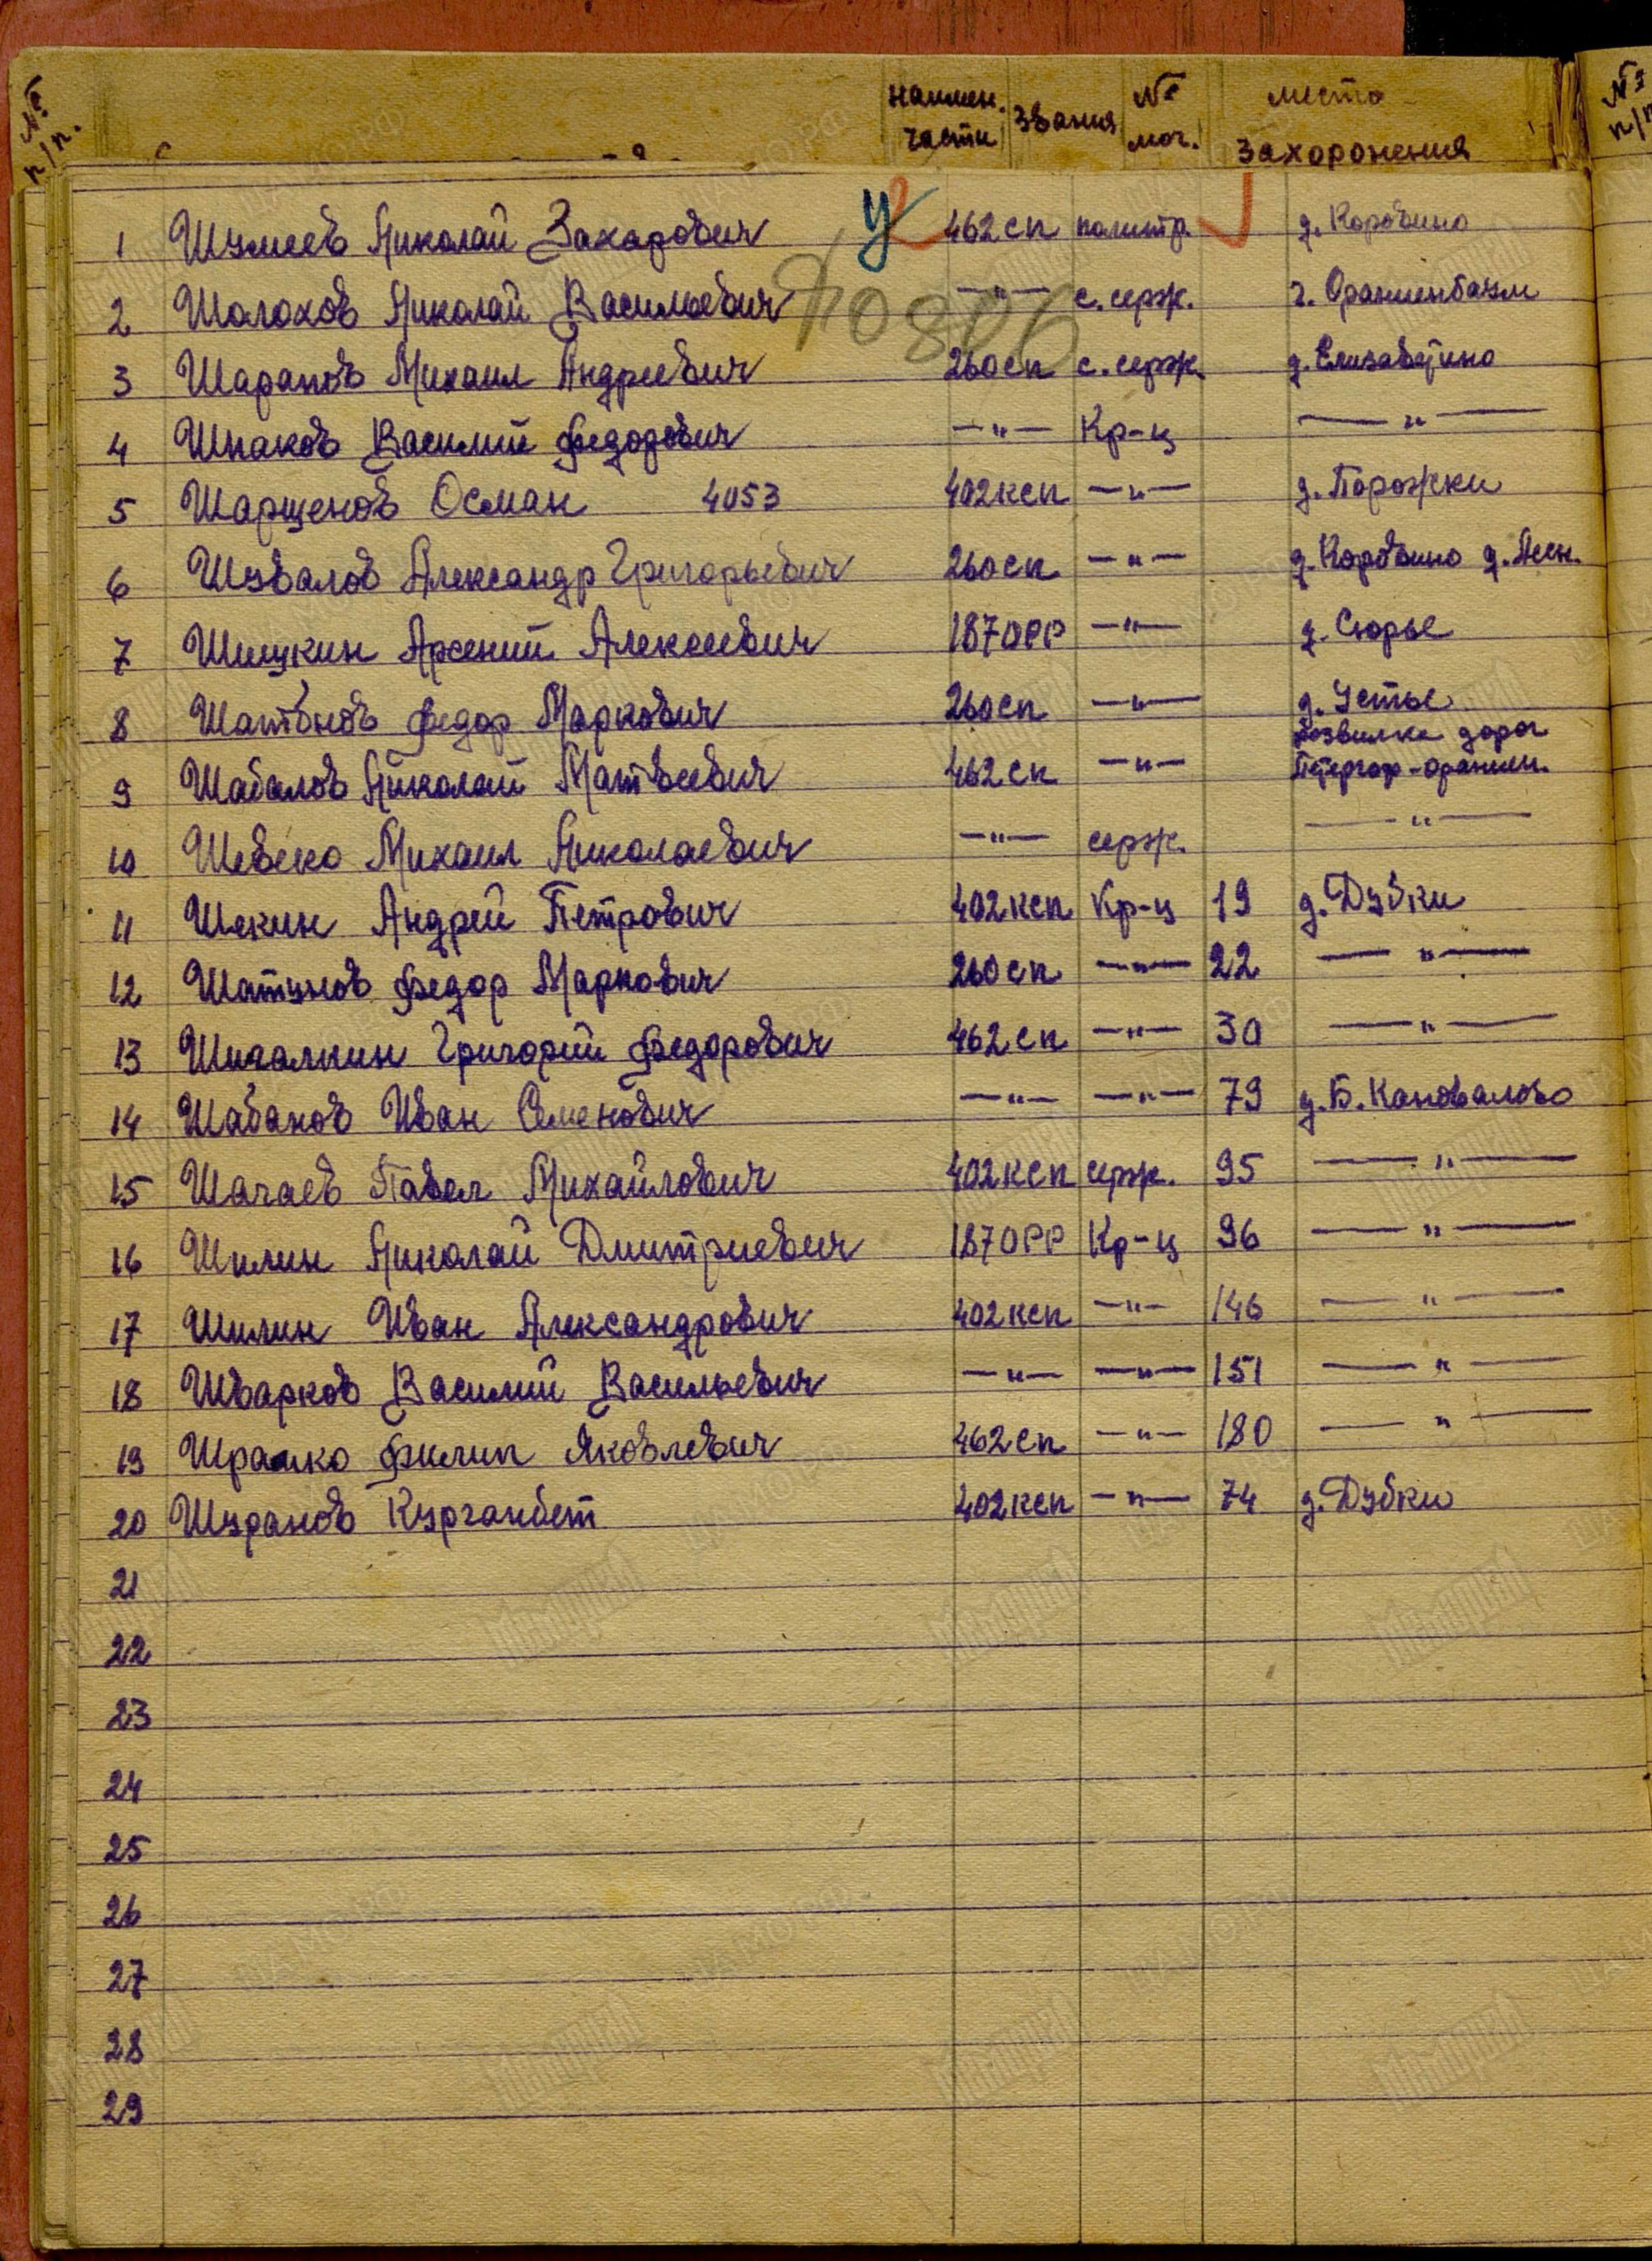 № п/п. наимен. части звания № мог. место захоронения № п/п
1 Шумеев Николай Захарович 462 сп политр. д. Коровино
2 Шолохов Николай Васильевич —"— с. серж. г. Ораниенбаум
3 Шарапов Михаил Андреевич 260 сп с. серж. д. Елизаветино
4 Шпаков Василий Федорович —"— Кр-ц —"—
5 Шарщенов Осман 4053 402 ксп —"— д. Порожки
6 Шувалов Александр Григорьевич 260 сп —"— д. Коровино д. Лен.
7 Шишукин Арсений Алексеевич 187 ОРР —"— д. Сюрье
8 Шатунов Федор Маркович 260 сп —"— д. Устье
развилка дорог
9 Шабалов Николай Матвеевич 462 сп —"— Петергоф-ораниен.
10 Шевеко Михаил Николаевич —"— серж. —"—
11 Шекин Андрей Петрович 402 ксп Кр-ц 19 д. Дубки
12 Шатунов Федор Маркович 260 сп —"— 22 —"—
13 Шигалкин Григорий Федорович 462 сп —"— 30 —"—
14 Шабанов Иван Семенович —"— —"— 79 д. Б. Кановалово
15 Шагаев Павел Михайлович 402 ксп серж. 95 —"—
16 Шилин Николай Дмитриевич 187 ОРР Кр-ц 96 —"—
17 Шилин Иван Александрович 402 ксп —"— 146 —"—
18 Шварков Василий Васильевич —"— —"— 151 —"—
19 Шрамко Филип Яковлевич 462 сп —"— 180 —"—
20 Шуранов Курганбет 402 ксп —"— 74 д. Дубки
21
22
23
24
25
26
27
28
29